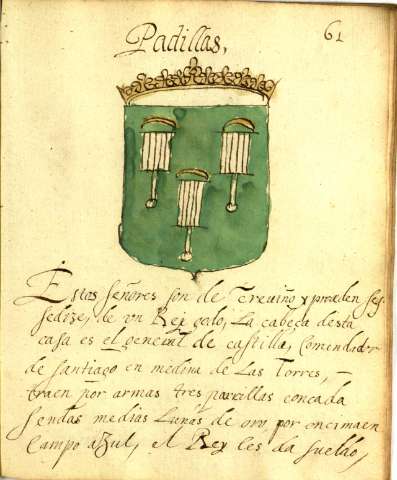 Padillas,
61
Estos señores son de Treviño y proceden seg
sedize, de vn Rey godo, La cabeça desta
casa es el de castilla, Comendador
de Santiago en medina de Las Torres, –
traen por armas tres parrillas con cada
sendas medias Lunas de oro por encima en
Campo azul, el Rey les da sueldo,